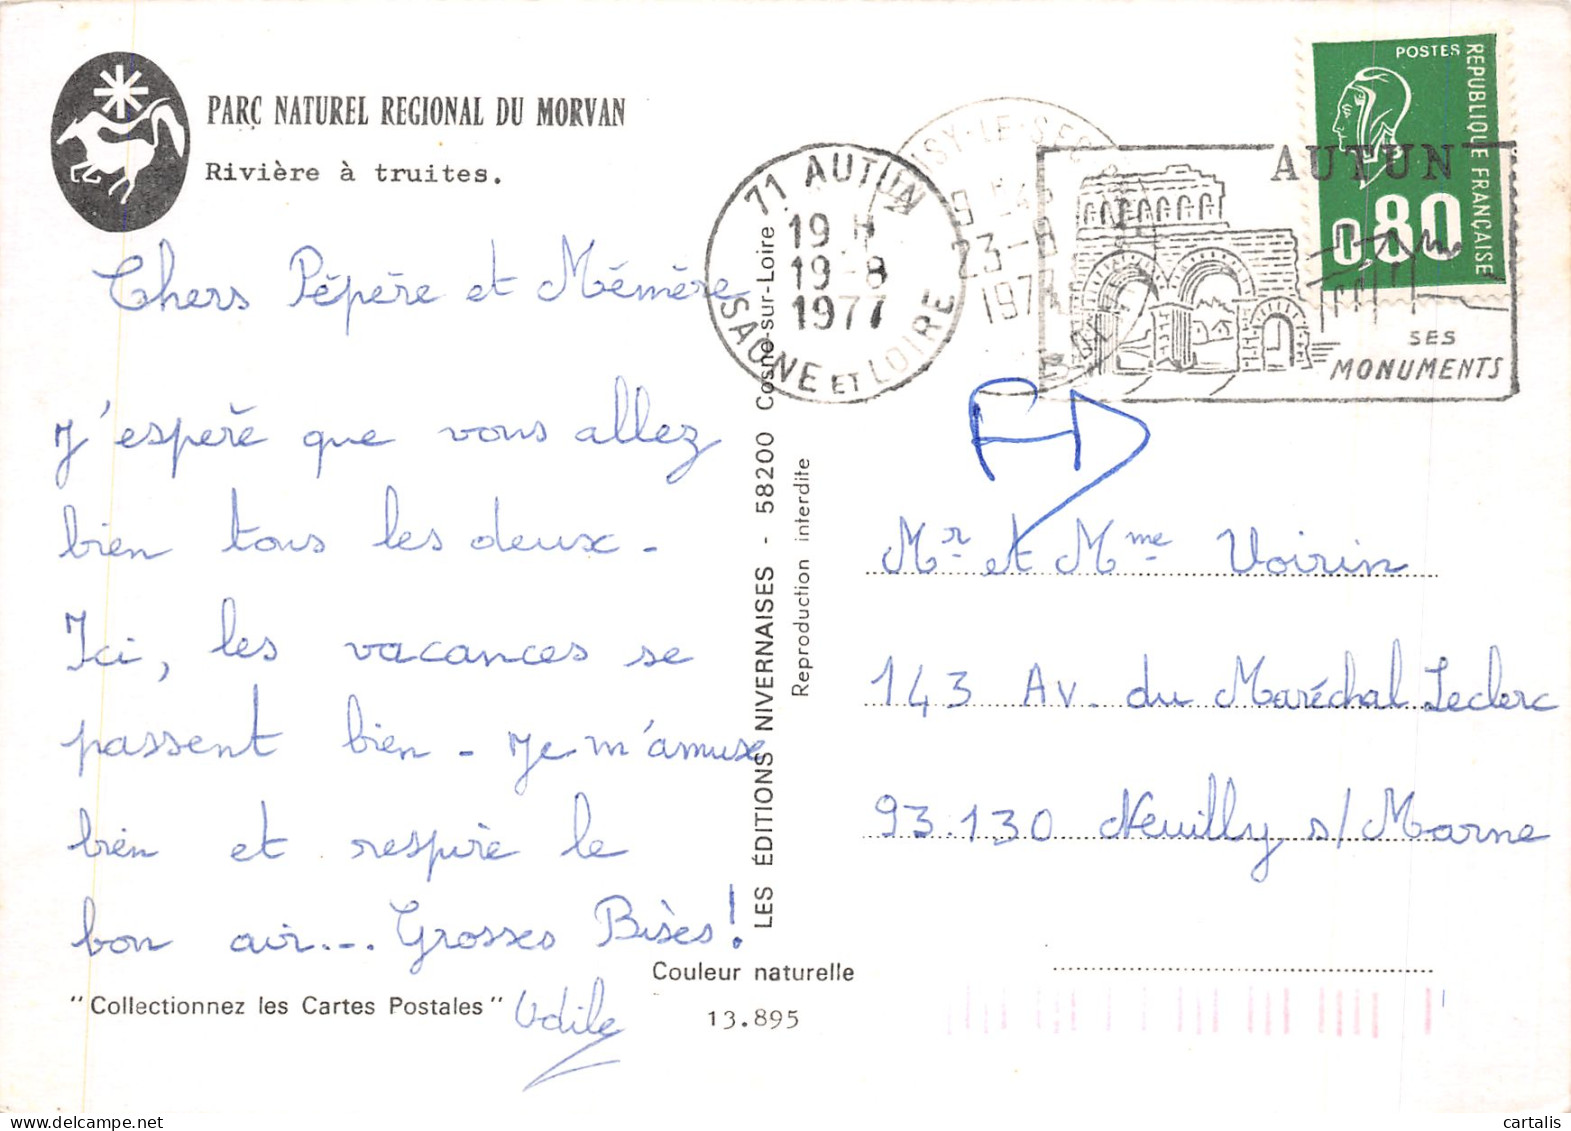 PARC NATUREL REGIONAL DU MORVAN
Rivière à truites.
Chers Pépère et Mémère
J'espère que vous allez
bien tous les deux.
Ici, les vacances se
passent bien. Je m'amuse
bien et respire le
bon air... Grosses Bises!
Odile
"Collectionnez les Cartes Postales"
Couleur naturelle
13.895
LES ÉDITIONS NIVERNAISES - 58200 Cosne-sur-Loire
Reproduction interdite
71 AUTUN
19 H
19-8
1977
SAONE ET LOIRE
23-8
AUTUN
SES
MONUMENTS
POSTES
REPUBLIQUE FRANÇAISE
0,80
Mr et Mme Voirin
143 Av. du Maréchal Leclerc
93.130 Neuilly s/ Marne
cartalis
delcampe.net